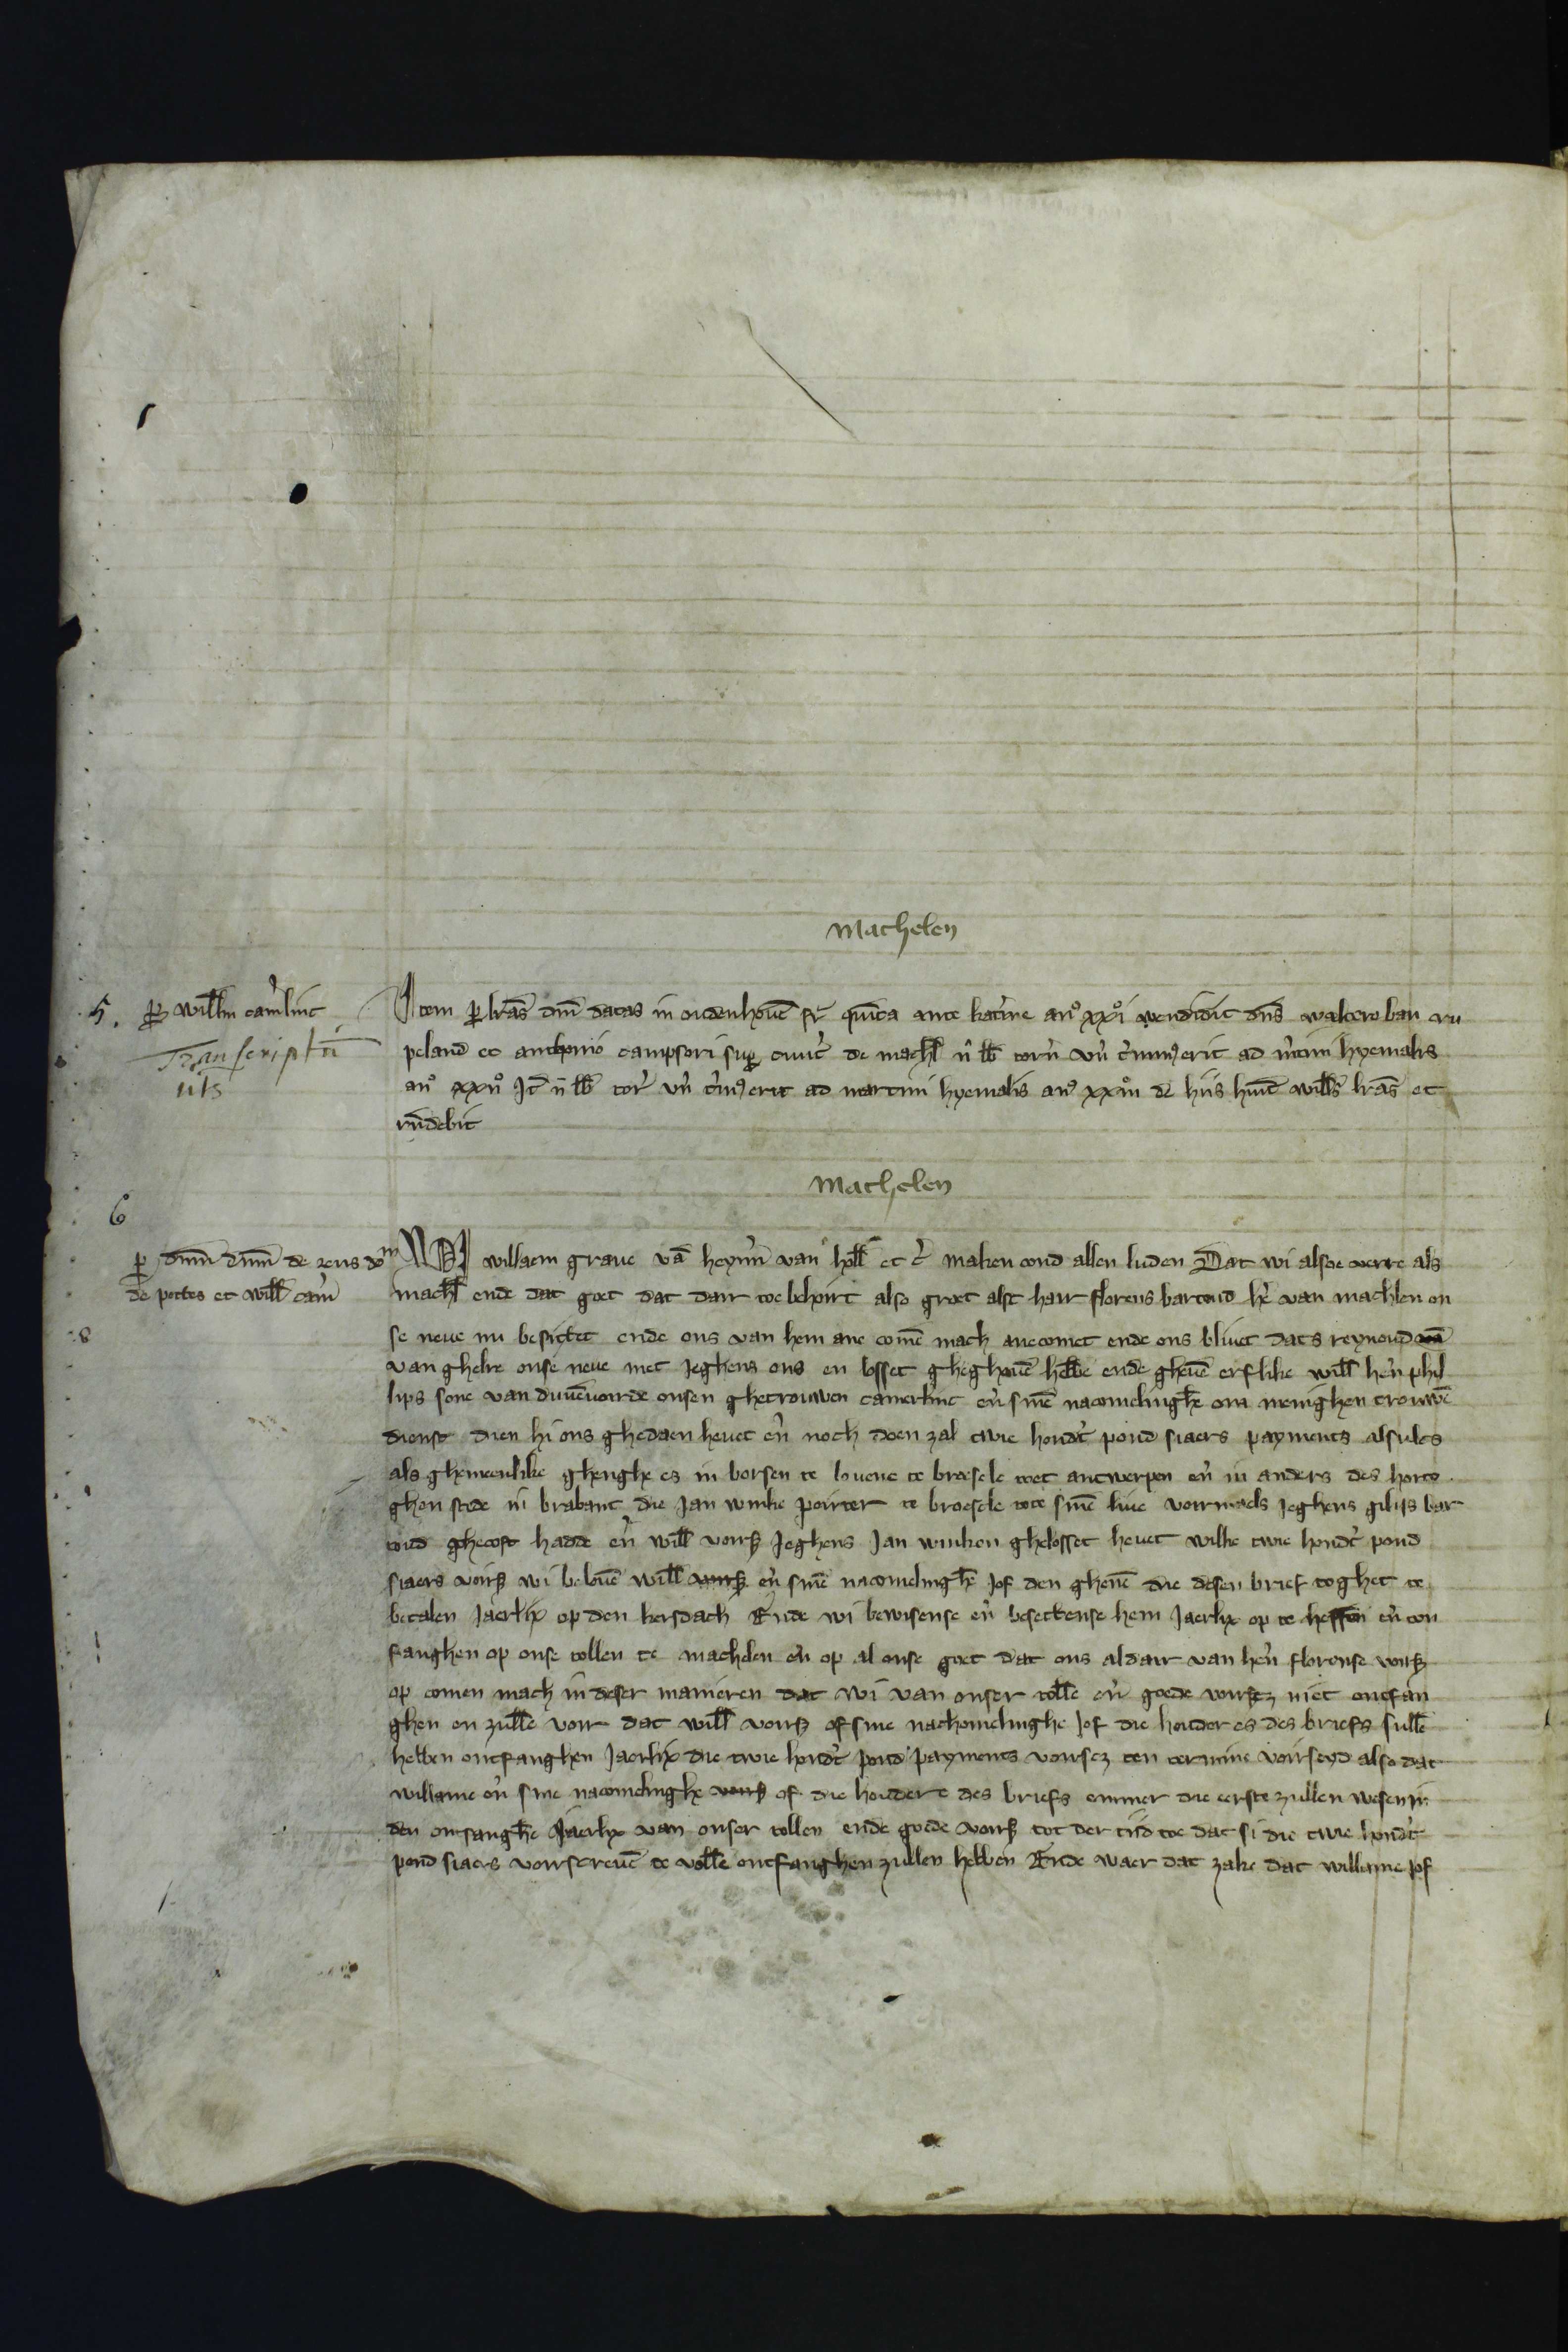 Machelen
5. p willm cam'linc
Transcriptū
uts
Item p lrās dnī datas in oudenhouē fr quīta ante kat'ine an° xx°i vendidit dns waltero ban cru
peland et anthonio campsori sup civit' de machl ii lb torn' un' t'minus erit ad m'tini hyemalis
an° xxii° It ii lb tor' un' t'minus erit ad martini hyemalis an° xx°iii de hiis huīt wills lrās et
rndebit
Machelen
6
p dnm dnm de
de pottes et will cam'
WI willaem graue vā heyn' van holl et c' maken cond allen luden Dat wi alsoe verre als
machl ende dat goet dat dair toe behoirt also groet alst hair florens bartoud h'e van machlen on
se neue nu besittet ende ons van hem ane comē mach anecomet ende ons bliuet dats reynoud vā
van ghelre onse neue met Jeghens ons en losset gheghouē hebbē ende gheuē erflike will her'n phil
lips sone van duuēuoirde onsen ghetrouwen camerlinc en' sinē nacomelinghē om menighen trouwē
dienst dien hi ons ghedaen heuet en' noch doen zal twie hond't pond siaers payments alsulcs
als ghemeenlike ghenghe es in borsen te louene te broesele toet antwerpen en' in anders des herto
ghen stede in brabant die Jan winke poirter te broesele tote sinē liue voirmaels Jeghens gilijs bar
toud ghecoft hadde en' will voirs Jeghens Jan winken ghelosset heuet wilke twie hond't pond
siaers voirs wi belouē will voirs en' sinē nacomelinghē Jof den ghenē die desen brief toghet te
betalen Jaerlix op den kersdach Ende wi bewisense en' besettense hem Jaerlix op te heffen en' ton
fanghen op onse tollen te machelen en' op al onse goet dat ons aldair van her'n florense voirs
op comen mach in deser manieren dat wi van onser tolle en' goede voirsz niet ontfan
ghen en zullē voir dat will voirs of sine nachomelinghe Jof die houder es des briefs sullē
hebben ontfanghen Jaerlix die twie hond't pond payments voirsez ten termine voirseyd also dat
willame en' sine nacomelinghe voirs of die houdere des briefs emmer die eerste zullen wesen in
den ontfanghē Jaerlix van onser tollen ende goede voirs tot der tijd toe dat si die twie hond't
pond siaers voirscreuē te vollē ontfanghen zullen hebben Ende waer dat zake dat willame Jof